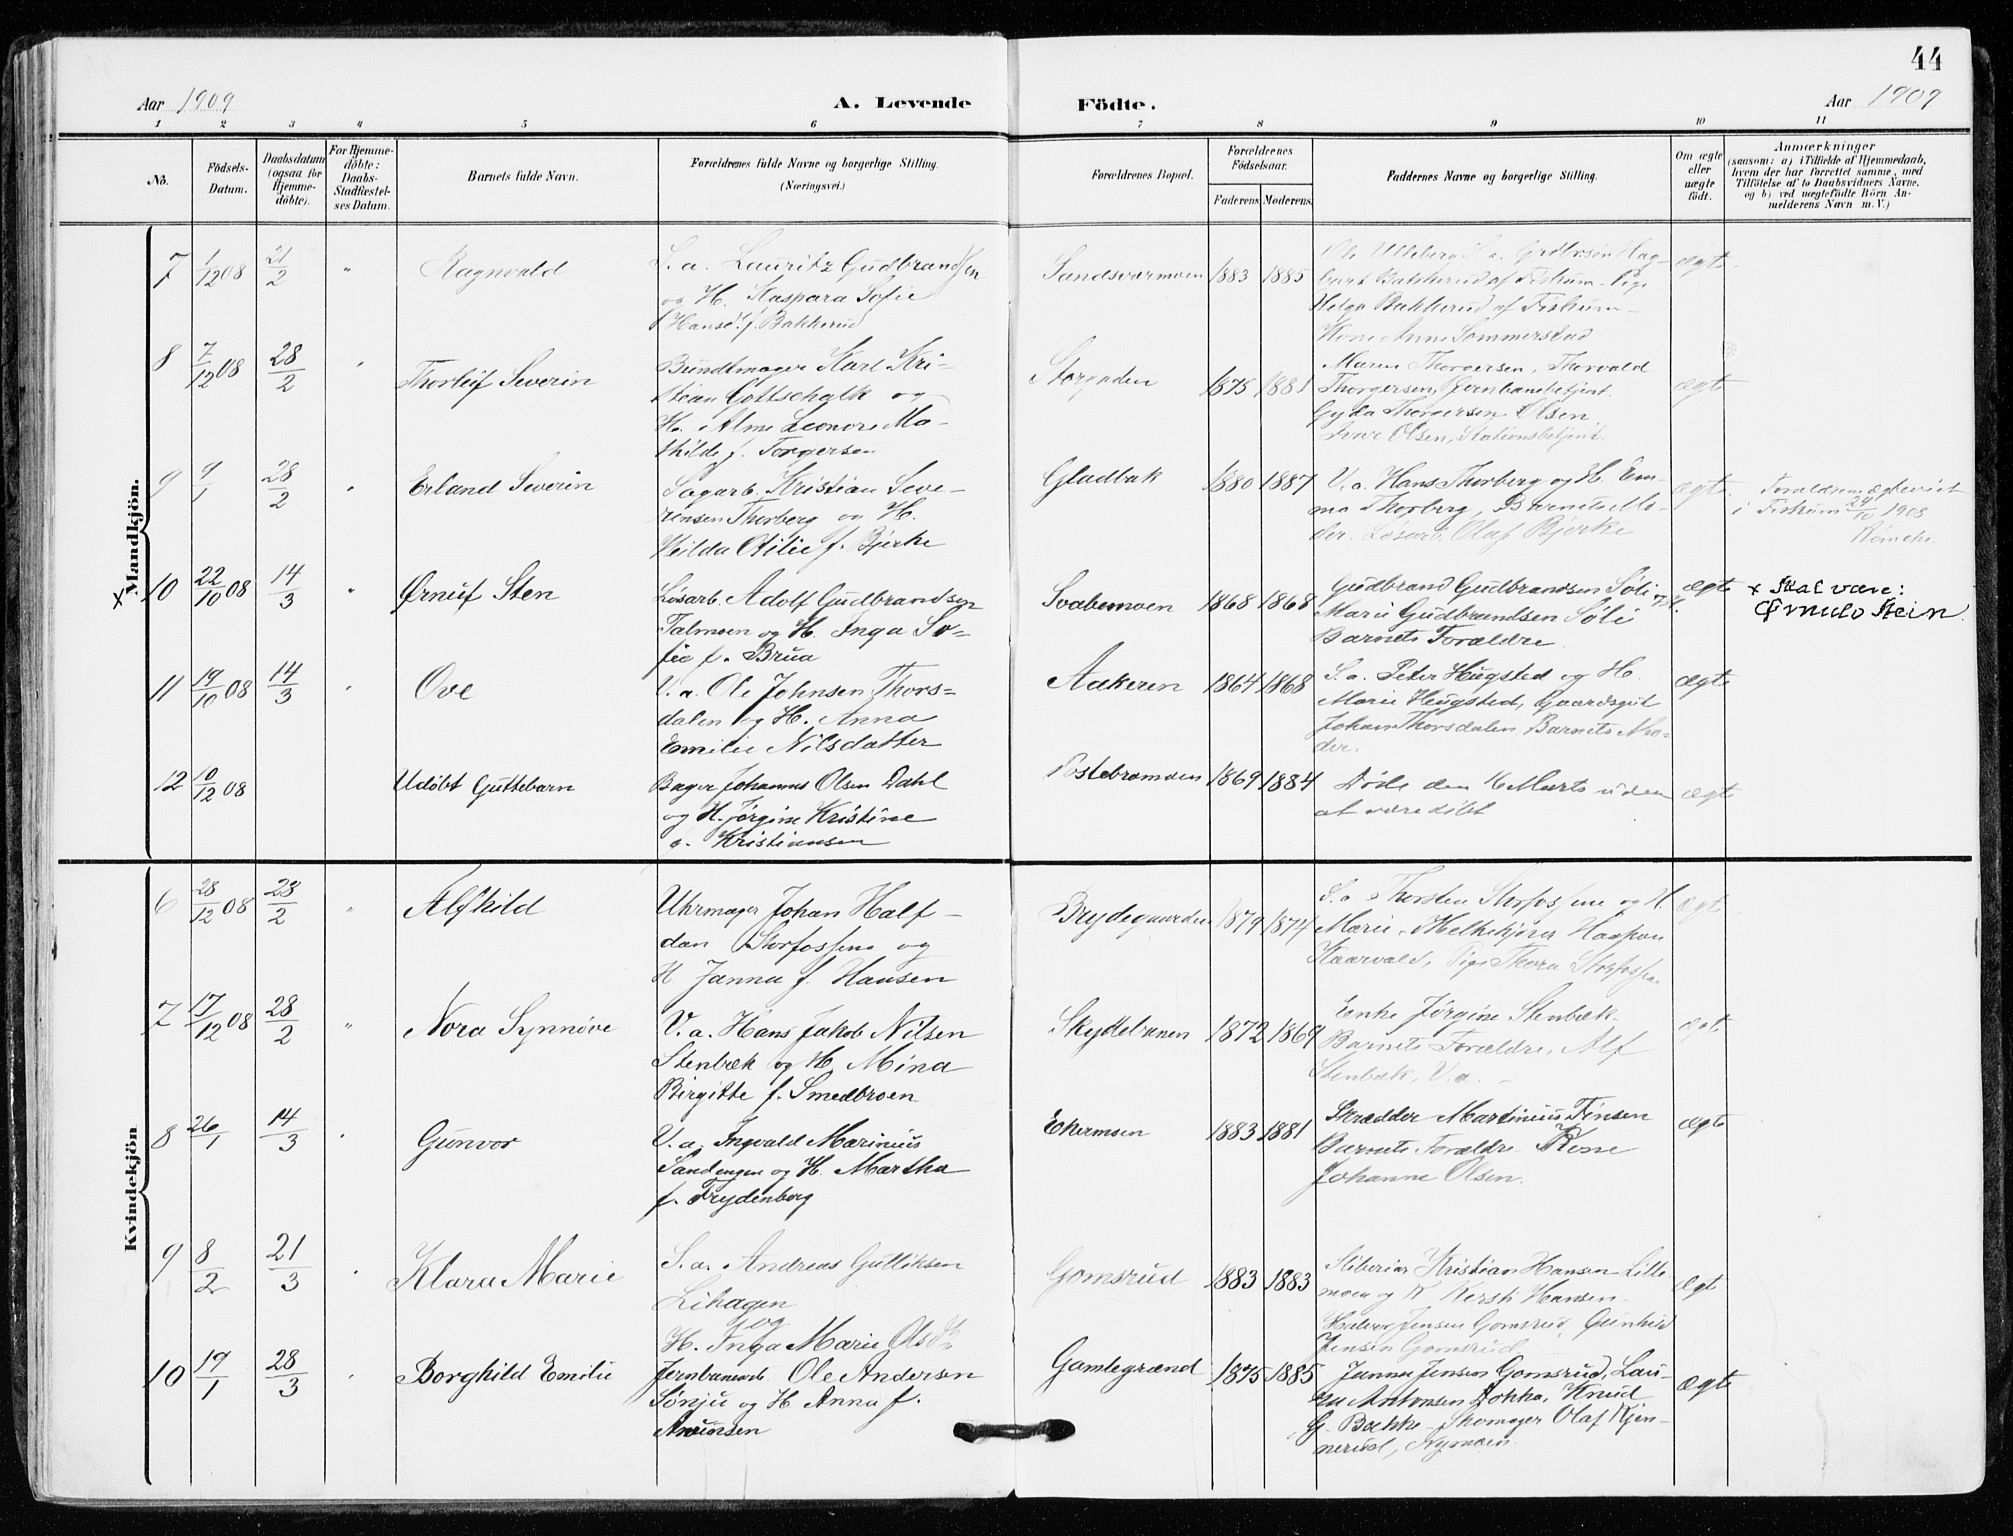 44
Aar 1909
A. Levende
Födte.
Aar 1909
1 2 3 4 5 6 7 8 9 10 11
No.
Födsels-
Datum.
Daabsdatum
(ogsaa for
Hjemme-
döbte).
For Hjemme-
döbte:
Daabs-
Stadfæstel-
ses Datum.
Barnets fulde Navn.
Forældrenes fulde Navne og borgerlige Stilling.
(Næringsvei.)
Forældrenes Bopæl.
Forældrenes
Födselsaar.
Faderens Moderens
Faddernes Navne og borgerlige Stilling.
Om ægte
eller
uægte
födt.
Anmærkninger
(saasom: a) i Tilfælde af Hjemmedaab,
hvem der har forrettet samme, med
Tilföielse af to Daabsvidners Navne.
og b) ved uægtefödte Börn An-
melderens Navn m. V.)
Mandkjön.
7 1/12 08 21/2 " Ragnvald
S. a. Lauritz Gudbrandsen
og H. Kaspara Sofie
Hansd. f. Bakkerud
Sandsværmoen 1883 1885
Ole Ulleberg S. a.
Bakkerud af Fiskum Pige
Helga Bakkerud af Fiskum
Kone Anne Sommerstad
ægte
8 7/12 08 28/2 " Thorleif Severin
Bundtmager Karl Kri-
stian Gottschalk og
H. Alma Leonore Ma-
thilde f. Torgersen
Storgaden 1875 1881
Maren Thorgersen, Thorvald
Thorgersen, Jernbanebetjent.
Gyda Thorgersen Olsen
Olsen, Stationsbetjent.
ægte
9 9/1 28/2 " Erland Severin
Sagarb. Kristian Seve-
rinsen Thorberg og H.
Hilda Otilie f. Bjerke
Gladbak 1880 1887
V. a. Hans Thorberg og H. Em-
ma Thorberg, Barnets Mo-
der. Løsarb. Olaf Bjerke
ægte
Forældrene ægteviet
i Fiskum 24/10 1908
10 22/10 08 14/3 " Ørnulf Sten
Løsarb. Adolf Gudbrandsen
Talmoen og H. Inga So-
fie f. Brua
Svabemoen 1868 1868
Gudbrand Gudbrandsen Søli
Marie Gudbrandsen Søli
Barnets Forældre
ægte
x Skal være:
Ørnulv Stein.
11 19/10 08 14/3 " Ove
V. a. Ole Johnsen Thors-
dalen og H. Anna
Emilie Nilsdatter
Aakeren 1864 1868
S. a. Peter Hugsted og H.
Marie Heugsted, Gaardsgut
Johan Thorsdalen Barnets Mo-
der.
ægte
12 10/12 08 Udöbt Guttebarn
Bager Johannes Olsen Dahl
og H. Jörgine Kristine
f. Kristiansen
1869 1884
Døde den 16 Marts uden
at være döbt
ægte
Kvindekjön
6 28/12 08 28/2 " Alfhild
Uhrmager Johan Half-
dan Storfossene og
H. Janna f. Hansen
Brydegaarden 1879 1874
S. a Thorsten Storfossene og H.
Marie, Melkekjører Haagon
Kaarvald, Pige Thora
ægte
7 17/12 08 28/2 " Nora Synnöve
V. a. Hans Jakob Nilsen
Stenbæk og H. Mina
Birgitte f. Smedbroen
Skydebanen 1872 1869
Enke Jørgine Stenbæk
Barnets Forældre, Alf
Stenbæk, V. a.
ægte
8 26/1 14/3 Gunvor
V. a. Ingvald Marinius
Sandengen og H. Martha
f. Frydenberg
Ekermoen 1883 1881
Skrædder Martinius Finsen
Barnets Forældre Kone
Johanne Olsen.
ægte
9 8/2 21/3 Klara Marie
S. a. Andreas Gulliksen
Lihagen
og
H. Inga Marie Olsd.
Gomsrud 1883 1883
Sliberiar. Kristian Hansen Lille-
moen og K. Kersti Hansen
Halvor Jensen Gomsrud, Gunhild
Jensen Gomsrud
ægte
10 19/1 28/3 Borghild Emilie
Jernbanearb. Ole Andersen
Sønju og H. Anna f.
Amundsen
Gamlegrænd 1875 1885
Janna Jensen Gomsrud, Lau-
ra Antonsen Aokka, Knud
G. Bakke, Skomager Olaf Kjen-
nerud, Nymoen.
ægte